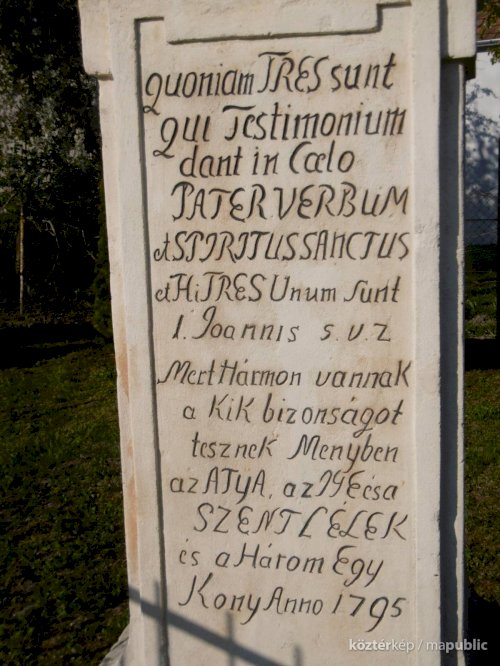 Quoniam TRES sunt
Qui Testimonium
dant in Cœlo
PATER VERBUM
et SPIRITUS SANCTUS
et Hi TRES Unum sunt
1. Joannis 5. v. 7
Mert Hármon vannak
a Kik bizonságot
tesznek Menyben
az ATyA, az IGE és a
SZENT LÉLEK
és a Három Egy
Kony Anno 1795
köztérkép / mapublic